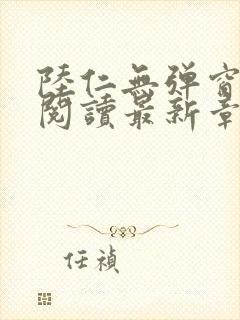 陸仁無彈窗
閱讀最新章
任禎